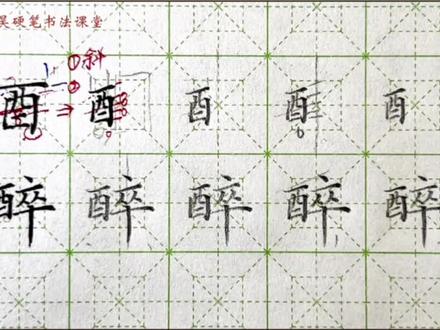 硬笔书法课堂
①斜
②
酉 酉 酉 酉 酉
醉 醉 醉 醉 醉